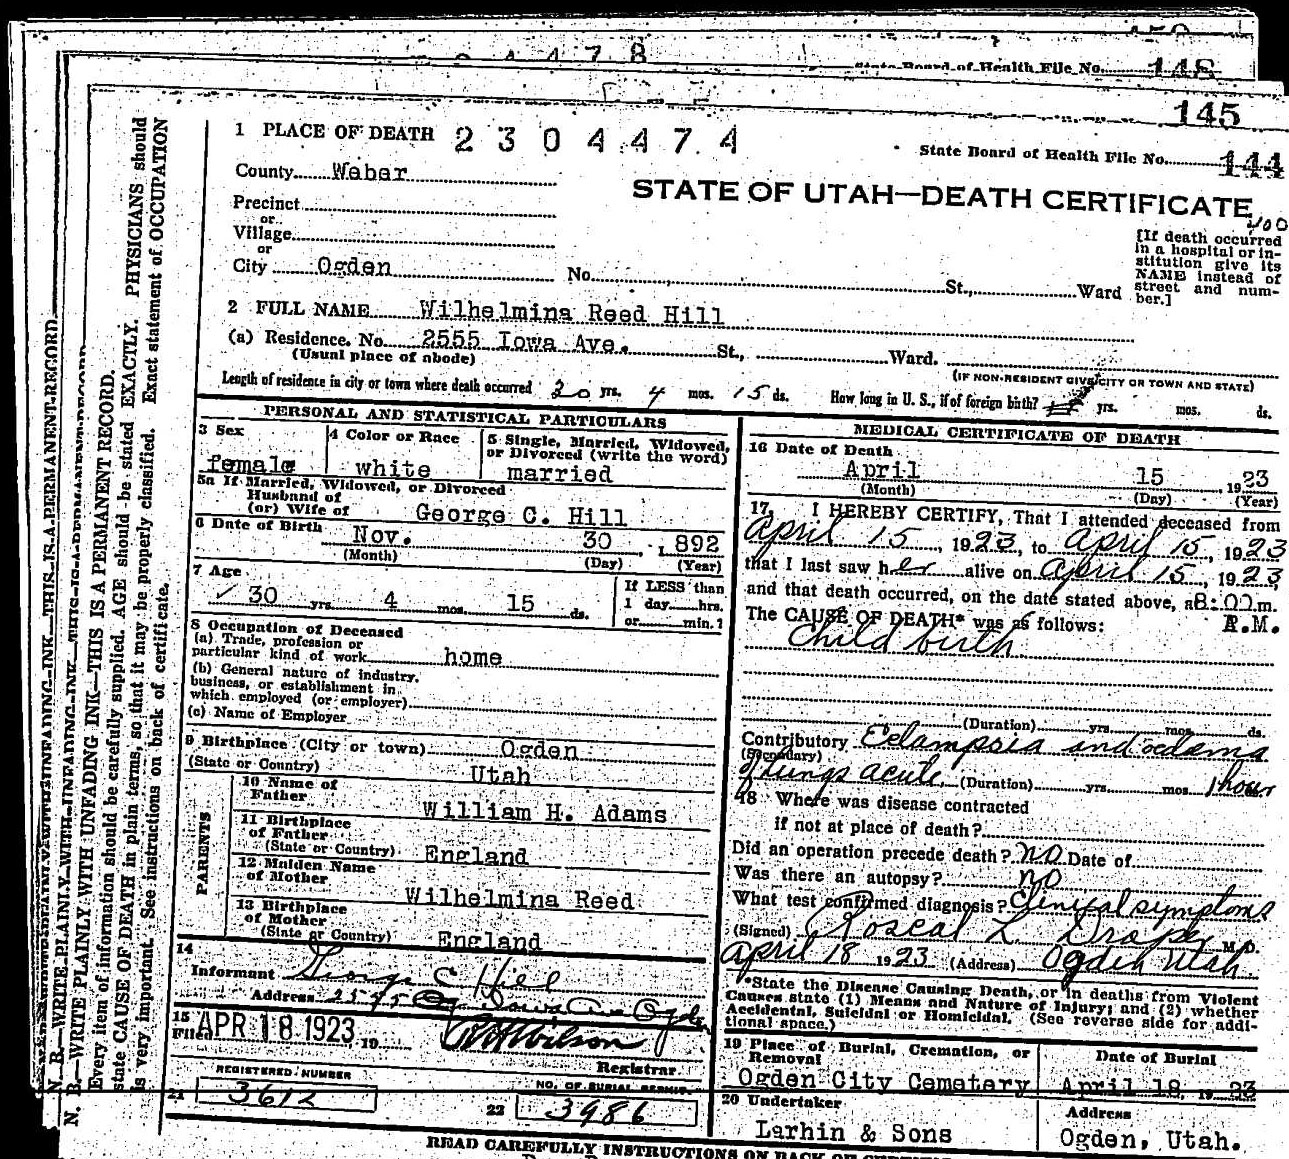 State Board of Health File No. 148
145
1 PLACE OF DEATH 2304474
State Board of Health File No. 144
County Weber
STATE OF UTAH—DEATH CERTIFICATE
Precinct
or
Village
or
City Ogden No. St., Ward
[If death occurred
in a hospital or in-
stitution give its
NAME instead of
street and num-
ber.]
2 FULL NAME Wilhelmina Reed Hill
(a) Residence. No. 2555 Iowa Ave. St., Ward.
(Usual place of abode)
(IF NON-RESIDENT GIVE CITY OR TOWN AND STATE)
Length of residence in city or town where death occurred 30 yrs. 4 mos. 15 ds. How long in U. S., if of foreign birth? yrs. mos. ds.
PERSONAL AND STATISTICAL PARTICULARS
3 Sex
female
4 Color or Race
white
5 Single, Married, Widowed,
or Divorced (write the word)
married
5a If Married, Widowed, or Divorced
Husband of
(or) Wife of George C. Hill
6 Date of Birth Nov. 30, 1892
(Month) (Day) (Year)
7 Age
30 yrs. 4 mos. 15 ds.
If LESS than
1 day hrs.
or min.?
8 Occupation of Deceased
(a) Trade, profession or
particular kind of work home
(b) General nature of industry,
business, or establishment in
which employed (or employer)
(c) Name of Employer
9 Birthplace (City or town) Ogden
(State or Country) Utah
PARENTS
10 Name of
Father William H. Adams
11 Birthplace
of Father
(State or Country) England
12 Maiden Name
of Mother
Wilhelmina Reed
13 Birthplace
of Mother
(State or Country) England
14
Informant George C Hill
Address Iowa Ave Ogden
15
Filed APR 18 1923 19
Registrar
REGISTERED NUMBER
21 3612
NO. OF BURIAL PERMIT
22 3986
MEDICAL CERTIFICATE OF DEATH
16 Date of Death
April 15 1923
(Month) (Day) (Year)
17 I HEREBY CERTIFY, That I attended deceased from
April 15, 1923, to April 15, 1923
that I last saw her alive on April 15, 1923,
and that death occurred, on the date stated above, at 8:00 m.
The CAUSE OF DEATH* was as follows: P.M.
Child birth
(Duration) yrs. mos. ds.
Contributory Eclampsia and oedema
(Secondary)
of lungs acute (Duration) yrs. mos. 1 hour
18 Where was disease contracted
if not at place of death?
Did an operation precede death? no Date of
Was there an autopsy? no
What test confirmed diagnosis? Clinical symptoms
(Signed) M.D.
April 18 1923 (Address) Ogden Utah
*State the Disease Causing Death, or in deaths from Violent
Causes state (1) Means and Nature of Injury; and (2) whether
Accidental, Suicidal or Homicidal. (See reverse side for addi-
tional space.)
19 Place of Burial, Cremation, or
Removal
Ogden City Cemetery
Date of Burial
April 18, 1923
20 Undertaker
Larhin & Sons
Address
Ogden, Utah.
READ CAREFULLY INSTRUCTIONS ON BACK OF
N. B.—WRITE PLAINLY WITH UNFADING INK—THIS IS A PERMANENT RECORD
N. B.—WRITE PLAINLY WITH UNFADING INK—THIS IS A PERMANENT RECORD.
Every item of information should be carefully supplied. AGE should be stated EXACTLY. PHYSICIANS should
state CAUSE OF DEATH in plain terms, so that it may be properly classified. Exact statement of OCCUPATION
is very important. See instructions on back of certificate.